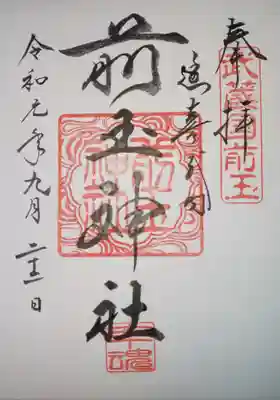 奉拝
延喜式内
前玉神社
令和元年九月二十二日
武蔵国前玉